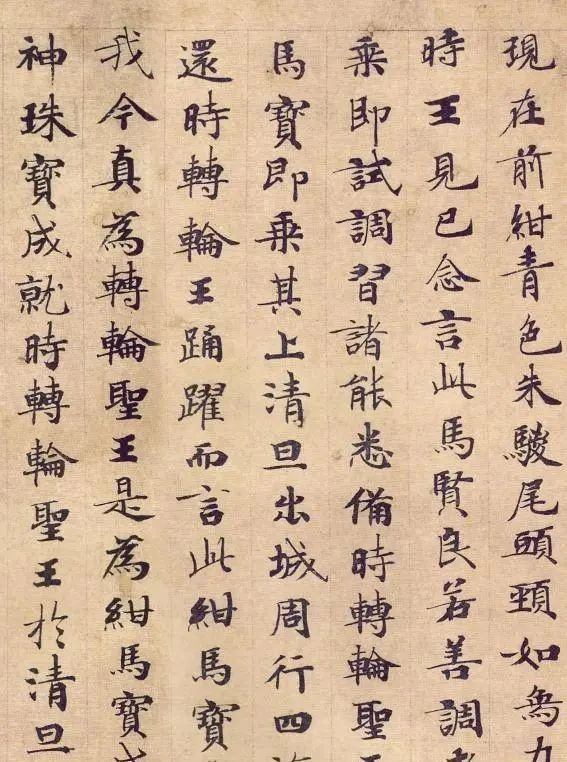 現在前紺青色朱騣尾頭頸如烏
時王見已念言此馬賢良若善調
乘即試調習諸能悉備時轉輪聖
馬寶即乘其上清旦出城周行四
還時轉輪王踊躍而言此紺馬寶
我今真為轉輪聖王是為紺馬寶
神珠寶成就時轉輪聖王於清旦